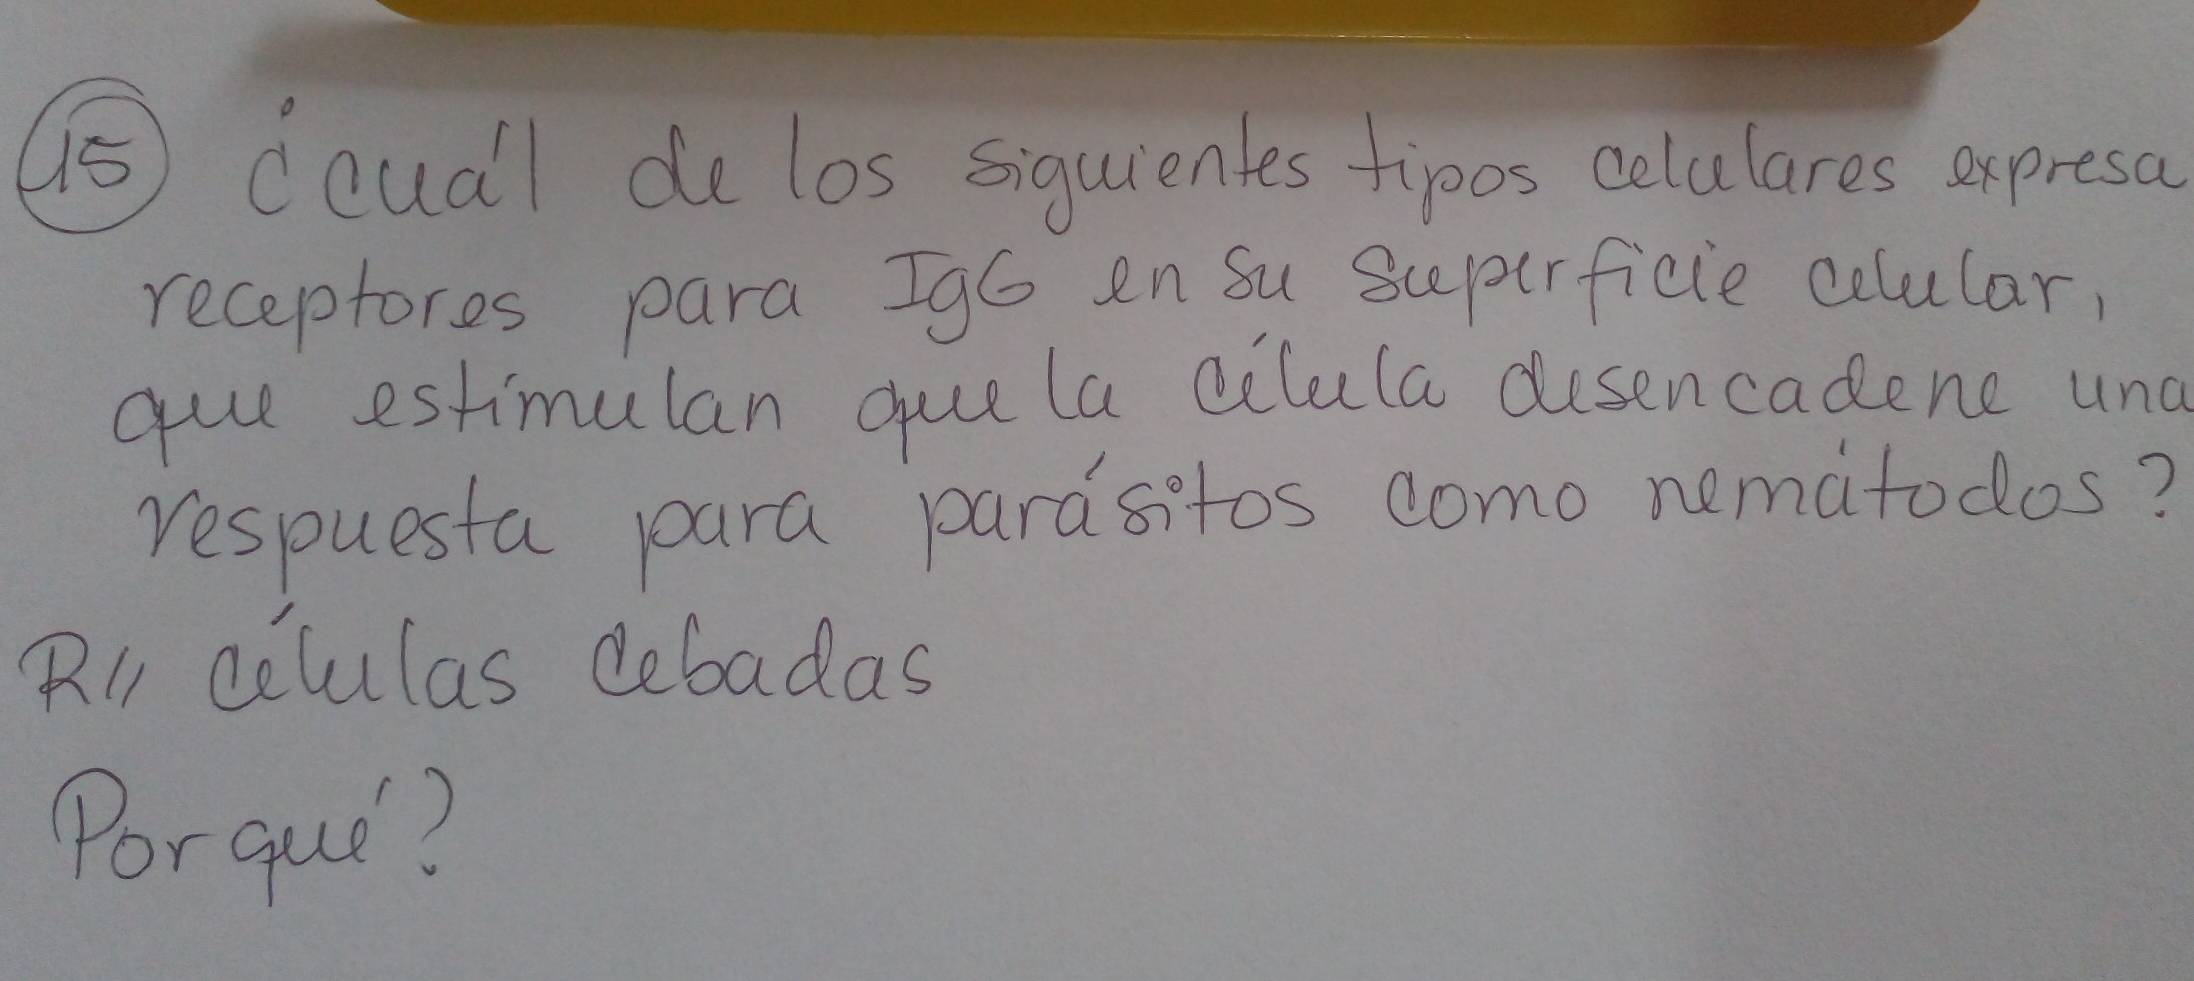 15 ¿cuál de los siguientes tipos celulares expresa
receptores para IgG en su superficie celular,
que estimulan que la célula desencadene una
respuesta para parásitos como nemátodos?
R// células cebadas
Por qué?